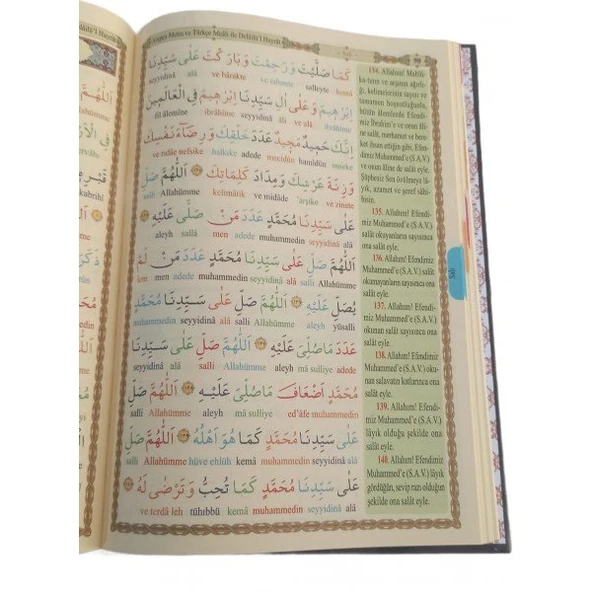 Arapça Metin ve Türkçe Meâli ile Delâilü'l Hayrât
كَمَا صَلَّيْتَ وَرَحِمْتَ وَبَارَكْتَ عَلٰى سَيِّدِنَا
seyyidinâ alâ ve bârekte ve rahimte salleyte kemâ
اِبْرٰهِيمَ وَعَلٰى اٰلِ سَيِّدِنَا اِبْرٰهِيمَ فِي الْعَالَمِينَ
fil âlemine ibrâhîme seyyidinâ âli ve alâ ibrâhîme
اِنَّكَ حَمِيدٌ مَجِيدٌ عَدَدَ خَلْقِكَ وَرِضَاۤءَ نَفْسِكَ
ve rıdâe nefsike halkike adede mecîdün hamîdün inneke
وَزِنَةَ عَرْشِكَ وَمِدَادَ كَلِمَاتِكَ اَللّٰهُمَّ صَلِّ
salli Allahümme kelimâtik ve midâde 'arşike ve zinete
عَلٰى سَيِّدِنَا مُحَمَّدٍ عَدَدَ مَنْ صَلّٰى عَلَيْهِ
aleyh sallâ men adede muhammedin seyyidinâ alâ
اَللّٰهُمَّ صَلِّ عَلٰى سَيِّدِنَا مُحَمَّدٍ عَدَدَ مَنْ لَمْ
lem men adede muhammedin seyyidinâ alâ salli Allahümme
يُصَلِّ عَلَيْهِ اَللّٰهُمَّ صَلِّ عَلٰى سَيِّدِنَا مُحَمَّدٍ
muhammedin seyyidinâ alâ salli Allahümme aleyh yüsalli
عَدَدَ مَاصُلِّيَ عَلَيْهِ اَللّٰهُمَّ صَلِّ عَلٰى سَيِّدِنَا
seyyidinâ alâ salli Allahümme aleyh mâ sulliye adede
مُحَمَّدٍ اَضْعَافَ مَاصُلِّيَ عَلَيْهِ اَللّٰهُمَّ صَلِّ
salli Allahümme aleyh mâ sulliye ed'âfe muhammedin
عَلٰى سَيِّدِنَا مُحَمَّدٍ كَمَا هُوَ اَهْلُهُ اَللّٰهُمَّ صَلِّ
salli Allahümme hüve ehlüh kemâ muhammedin seyyidinâ alâ
عَلٰى سَيِّدِنَا مُحَمَّدٍ كَمَا تُحِبُّ وَتَرْضٰى لَهُ
ve terdâ leh tühıbbü kemâ muhammedin seyyidinâ alâ
134. Allahım! Mahlû-
katının ve arşının ağırlı-
ğı, kelimelerinin sayısı ve
zâtının
bütün âlemlerde Efendi-
miz İbrahim'e ve onun âli-
ne salât, merhamet ve bere-
ket ihsan ettiğin gibi, Efen-
dimiz Muhammed'e (S.A.V.)
ve onun âline de salât eyle.
Şüphesiz Sen övülmeye lâ-
yık, azamet ve şeref sâhi-
bisin.
135. Allahım! Efendi-
miz Muhammed'e (S.A.V.)
salât okuyanların sayısınca
ona salât eyle.
136. Allahım! Efendi-
miz Muhammed'e (S.A.V.)
salât okumayanların sayısınca
ona salât eyle.
137. Allahım! Efendi-
miz Muhammed'e (S.A.V.)
okunan salât sayısınca ona
salât eyle.
138. Allahım! Efendimiz
Muhammed'e (S.A.V.) oku-
nan salavatın katlarınca ona
salât eyle.
139. Allahım! Efendi-
miz Muhammed'e (S.A.V.)
lâyık olduğu şekilde ona
salât eyle.
140. Allahım! Efendimiz
Muhammed'e (S.A.V.) lâyık
gördüğün, sevip razı olduğun
şekilde ona salât eyle.
Salı